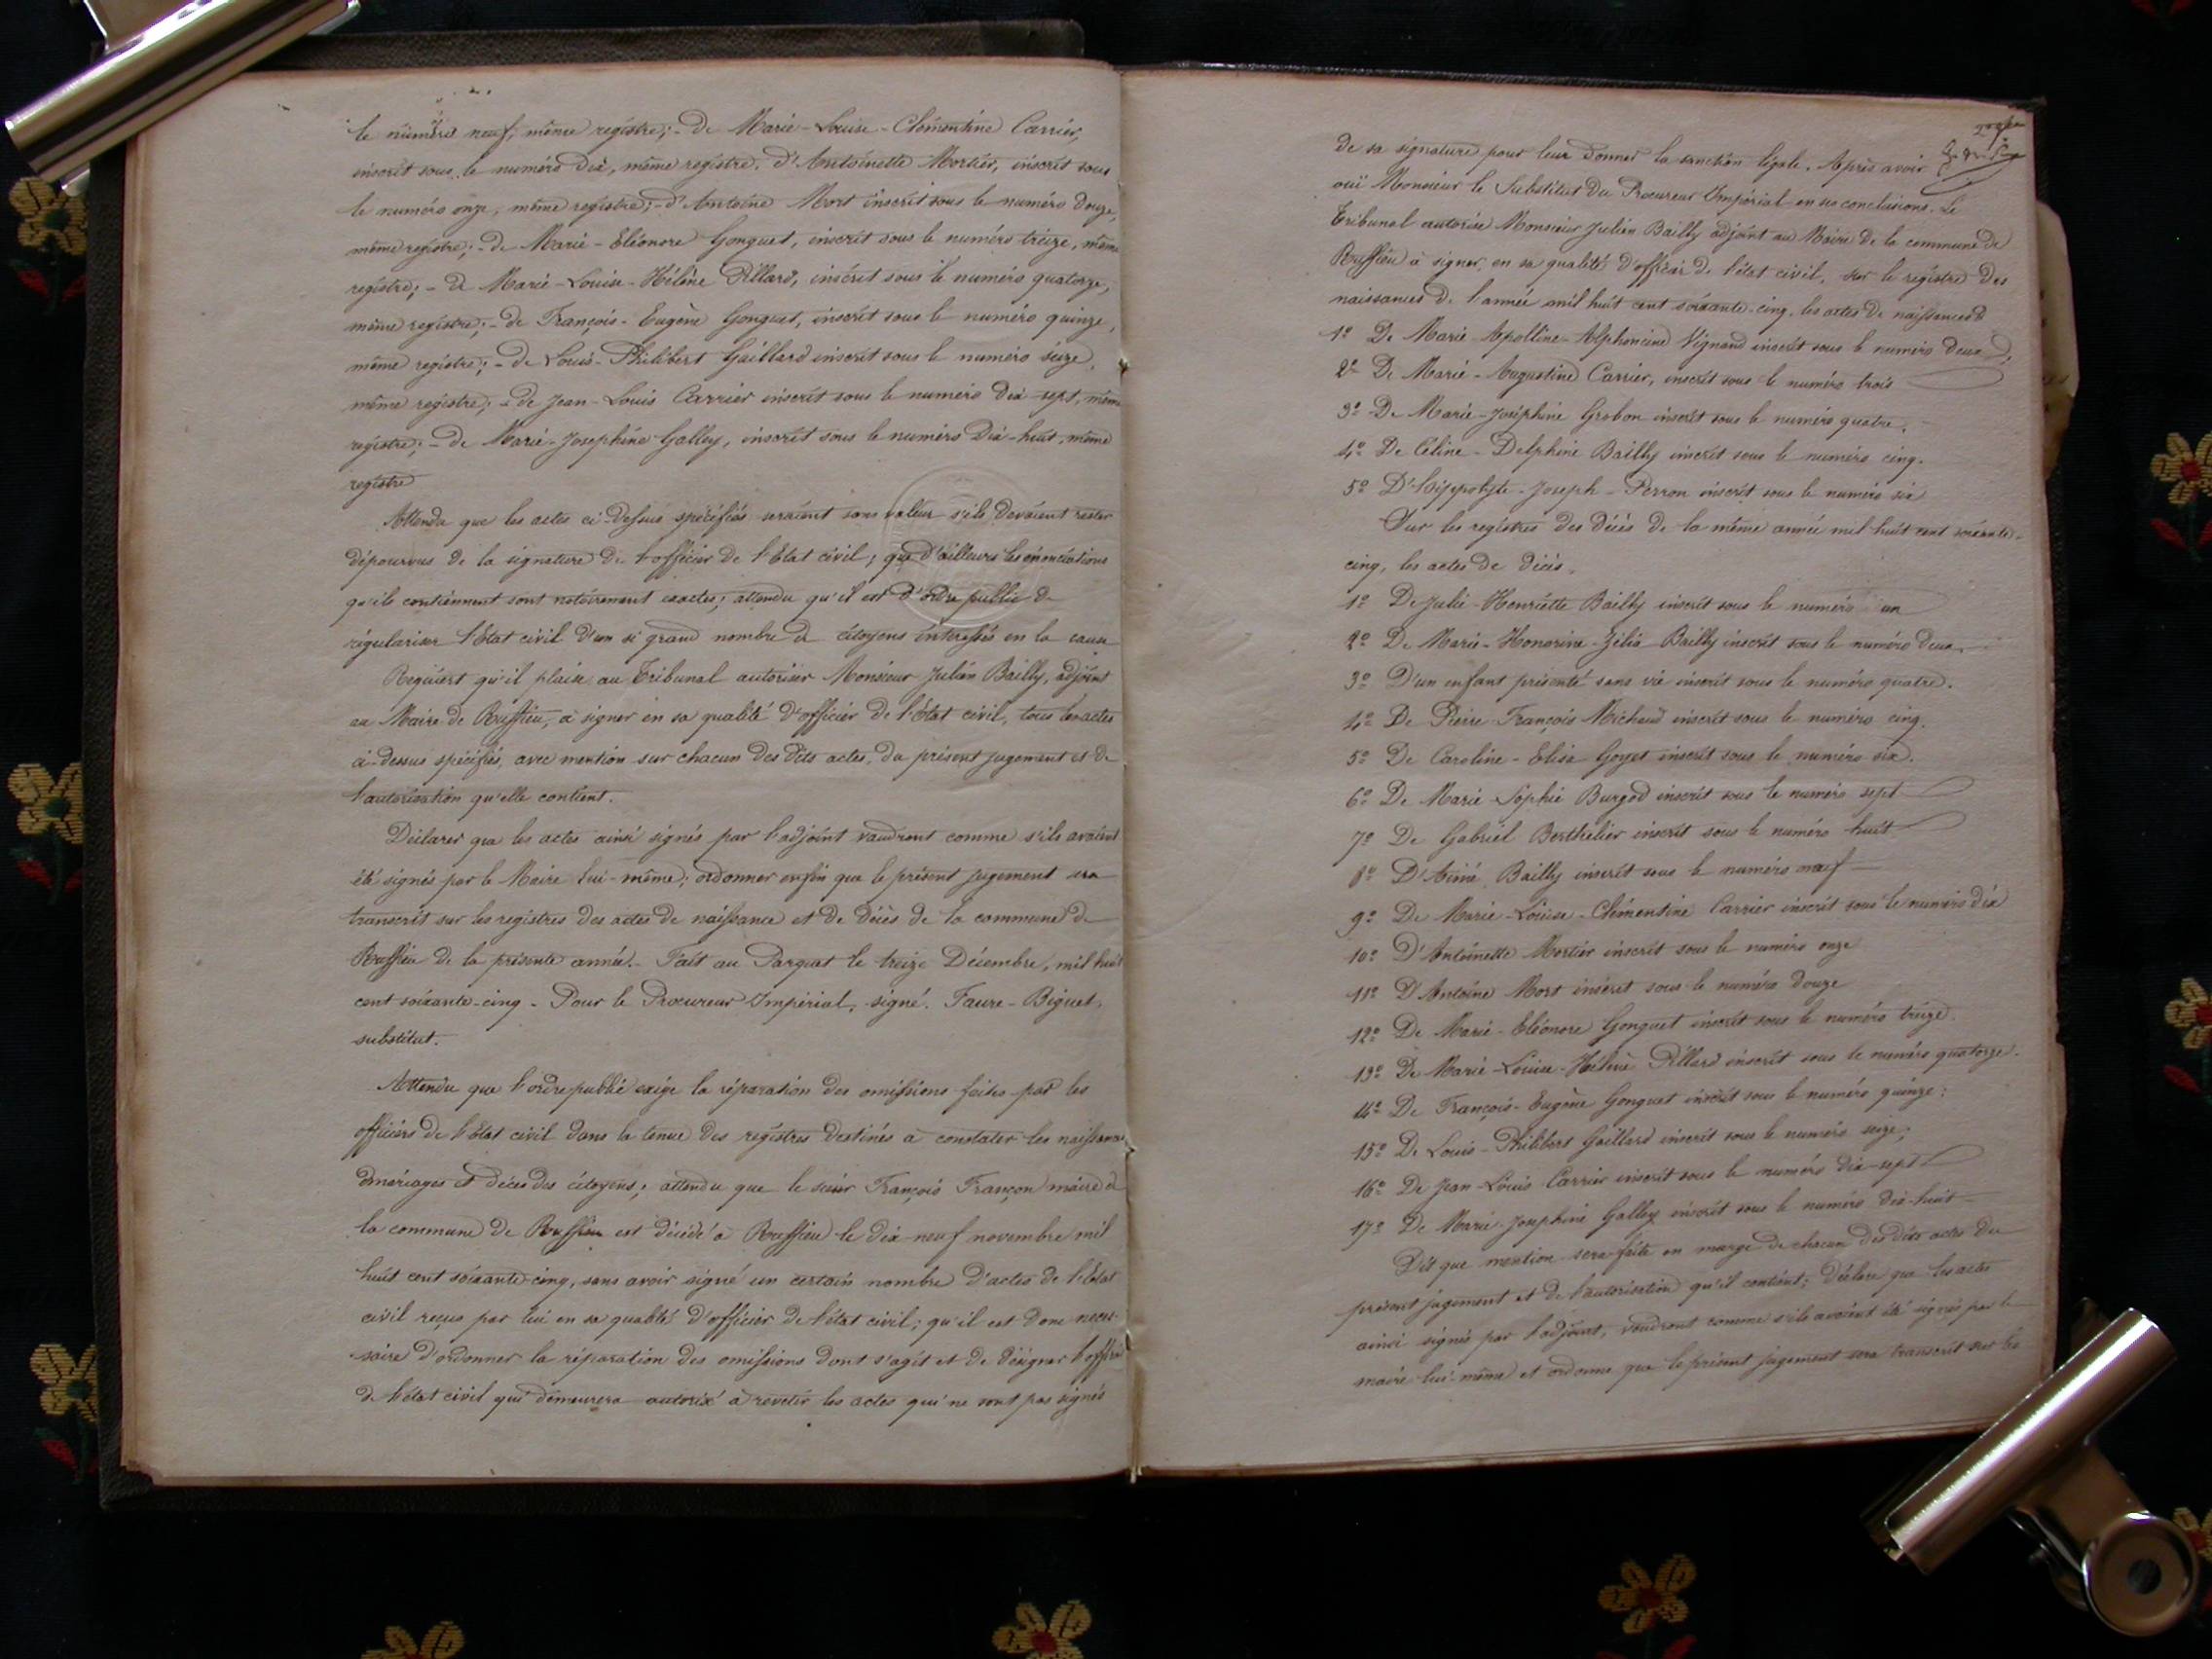 le numéro neuf, même registre; - de Marie-Louise-Clémentine Carrier,
inscrit sous le numéro dix, même registre. d'Antoinette Mortier, inscrit sous
le numéro onze, même registre; - d'Antoine Mort inscrit sous le numéro douze,
même registre; - de Marie-Eléonore Gonguet, inscrit sous le numéro treize, même
registre; - de Marie-Louise-Hélène Pillard, inscrit sous le numéro quatorze,
même registre; - de François-Eugène Gonguet, inscrit sous le numéro quinze,
même registre; - de Louis-Philibert Gaillard inscrit sous le numéro seize,
même registre; - de Jean-Louis Carrier inscrit sous le numéro dix-sept, même
registre; - de Marie-Josephine Galley, inscrit sous le numéro dix-huit, même
registre
Attendu que les actes ci-dessus spécifiés seraient sans valeur s'ils devaient rester
dépourvus de la signature de l'officier de l'Etat civil; que d'ailleurs les énonciations
qu'ils contiennent sont notoirement exactes; attendu qu'il est d'ordre public de
régulariser l'Etat civil d'un si grand nombre de citoyens intéressés en la cause
Requiert qu'il plaise au Tribunal autoriser Monsieur Julien Bailly, adjoint
au Maire de Ruffieu, à signer en sa qualité d'officier de l'Etat civil, tous les actes
ci-dessus spécifiés, avec mention sur chacun des dits actes, du présent jugement et de
l'autorisation qu'elle contient.
Déclarer que les actes ainsi signés par l'adjoint vaudront comme s'ils avaient
été signés par le Maire lui-même; ordonner enfin que le présent jugement sera
transcrit sur les registres des actes de naissance et de décès de la commune de
Ruffieu de la présente année. - Fait au Parquet le treize Décembre, mil huit
cent soixante-cinq - Pour le Procureur Impérial, signé. Faure-Biguet,
substitut.
Attendu que l'ordre public exige la réparation des omissions faites par les
officiers de l'Etat civil dans la tenue des registres destinés à constater les naissances
mariages et décès des citoyens; attendu que le sieur François Françon maire de
la commune de Ruffieu est décédé à Ruffieu le dix-neuf novembre mil
huit cent soixante-cinq, sans avoir signé un certain nombre d'actes de l'Etat
civil reçus par lui en sa qualité d'officier de l'état civil; qu'il est donc néces-
saire d'ordonner la réparation des omissions dont s'agit et de désigner l'officier
de l'état civil qui demeurera autorisé à revêtir les actes qui ne sont pas signés
de sa signature pour leur donner la sanction légale. Après avoir
ouï Monsieur le Substitut du Procureur Impérial en ses conclusions. Le
Tribunal autorise Monsieur Julien Bailly adjoint au Maire de la commune de
Ruffieu à signer en sa qualité d'officier de l'état civil, sur le registre des
naissances de l'année mil huit cent soixante-cinq, les actes de naissances
1º De Marie-Apolline-Alphoncine Vignand inscrit sous le numéro deux;
2º De Marie-Augustine Carrier, inscrit sous le numéro trois
3º De Marie-Joséphine Grobon inscrit sous le numéro quatre.
4º De Céline-Delphine Bailly inscrit sous le numéro cinq.
5º D'Hippolyte-Joseph-Perron inscrit sous le numéro six
Sur les registres des décès de la même année mil huit cent soixante-
cinq, les actes de décès.
1º De Julie-Henriette Bailly inscrit sous le numéro un
2º De Marie-Honorine-Zélia Bailly inscrit sous le numéro deux.
3º D'un enfant présenté sans vie inscrit sous le numéro quatre.
4º De Pierre François Michaud inscrit sous le numéro cinq.
5º De Caroline-Elisa Goyet inscrit sous le numéro six.
6º De Marie-Sophie Burgod inscrit sous le numéro sept
7º De Gabriel Berthelier inscrit sous le numéro huit
8º D'Aimé Bailly inscrit sous le numéro neuf
9º De Marie-Louise-Clémentine Carrier inscrit sous le numéro dix
10º D'Antoinette Mortier inscrit sous le numéro onze
11º D'Antoine Mort inscrit sous le numéro douze
12º De Marie-Eléonore Gonguet inscrit sous le numéro treize.
13º De Marie-Louise-Hélène Pillard inscrit sous le numéro quatorze.
14º De François-Eugène Gonguet inscrit sous le numéro quinze;
15º De Louis-Philibert Gaillard inscrit sous le numéro seize;
16º De Jean-Louis Carrier inscrit sous le numéro dix-sept
17º De Marie-Josephine Galley inscrit sous le numéro dix-huit
Dit que mention sera faite en marge de chacun des dits actes du
présent jugement et de l'autorisation qu'il contient; déclare que les actes
ainsi signés par l'adjoint, vaudront comme s'ils avaient été signés par le
maire lui-même et ordonne que le présent jugement sera transcrit sur les